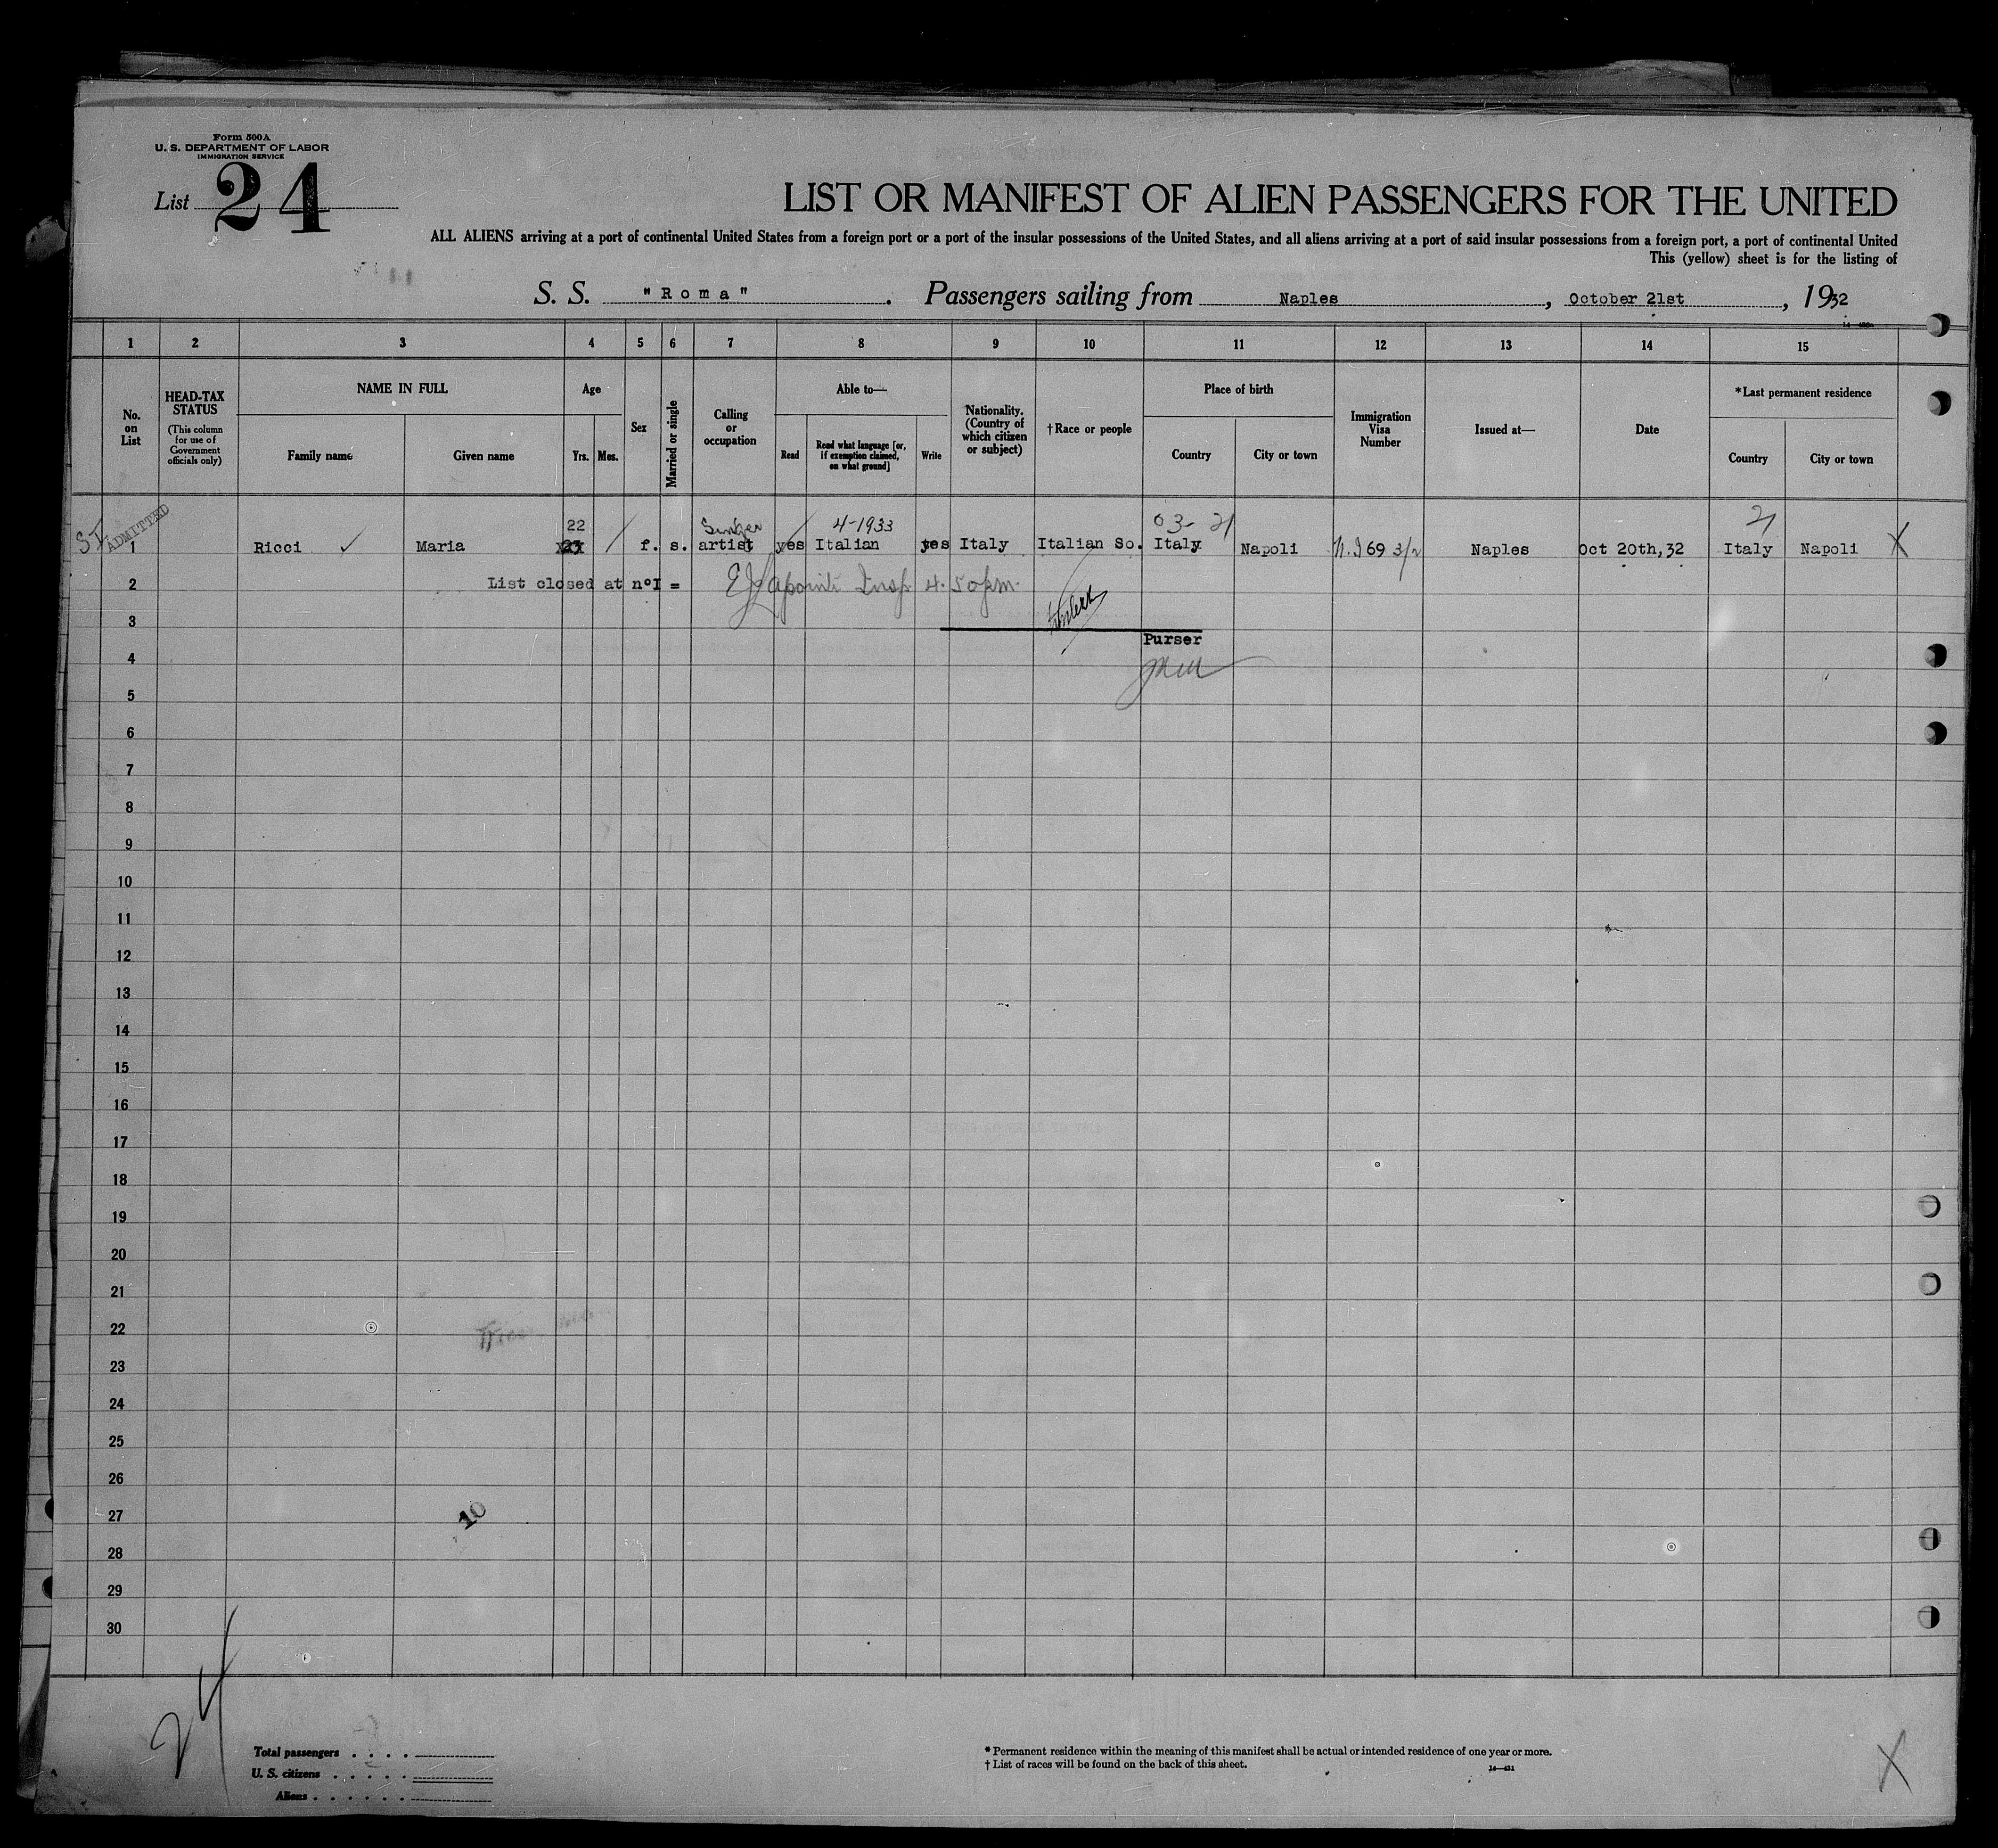 Form 500A
U. S. DEPARTMENT OF LABOR
IMMIGRATION SERVICE
List 24
LIST OR MANIFEST OF ALIEN PASSENGERS FOR THE UNITED
ALL ALIENS arriving at a port of continental United States from a foreign port or a port of the insular possessions of the United States, and all aliens arriving at a port of said insular possessions from a foreign port, a port of continental United
This (yellow) sheet is for the listing of
S. S. "Roma". Passengers sailing from Naples, October 21st, 1932
1 2 3 4 5 6 7 8 9 10 11 12 13 14 15
No. on List
HEAD-TAX STATUS
(This column for use of Government officials only)
NAME IN FULL
Family name
Given name
Age
Yrs.
Mos.
Sex
Married or single
Calling or occupation
Able to—
Read
Read what language [or, if exemption claimed, on what ground]
Write
Nationality. (Country of which citizen or subject)
†Race or people
Place of birth
Country
City or town
Immigration Visa Number
Issued at—
Date
*Last permanent residence
Country
City or town
22 Singer 4-1933 03- 21 21
ADMITTED
1 Ricci Maria f. s. artist yes Italian yes Italy Italian So. Italy Napoli 69 Naples Oct 20th, 32 Italy Napoli X
2 List closed at n°I = Insp 4.50 pm.
3
Purser
4
5
6
7
8
9
10
11
12
13
14
15
16
17
18
19
20
21
22
23
24
25
26
27
10
28
29
30
24
Total passengers
U. S. citizens
Aliens
* Permanent residence within the meaning of this manifest shall be actual or intended residence of one year or more.
† List of races will be found on the back of this sheet.
X